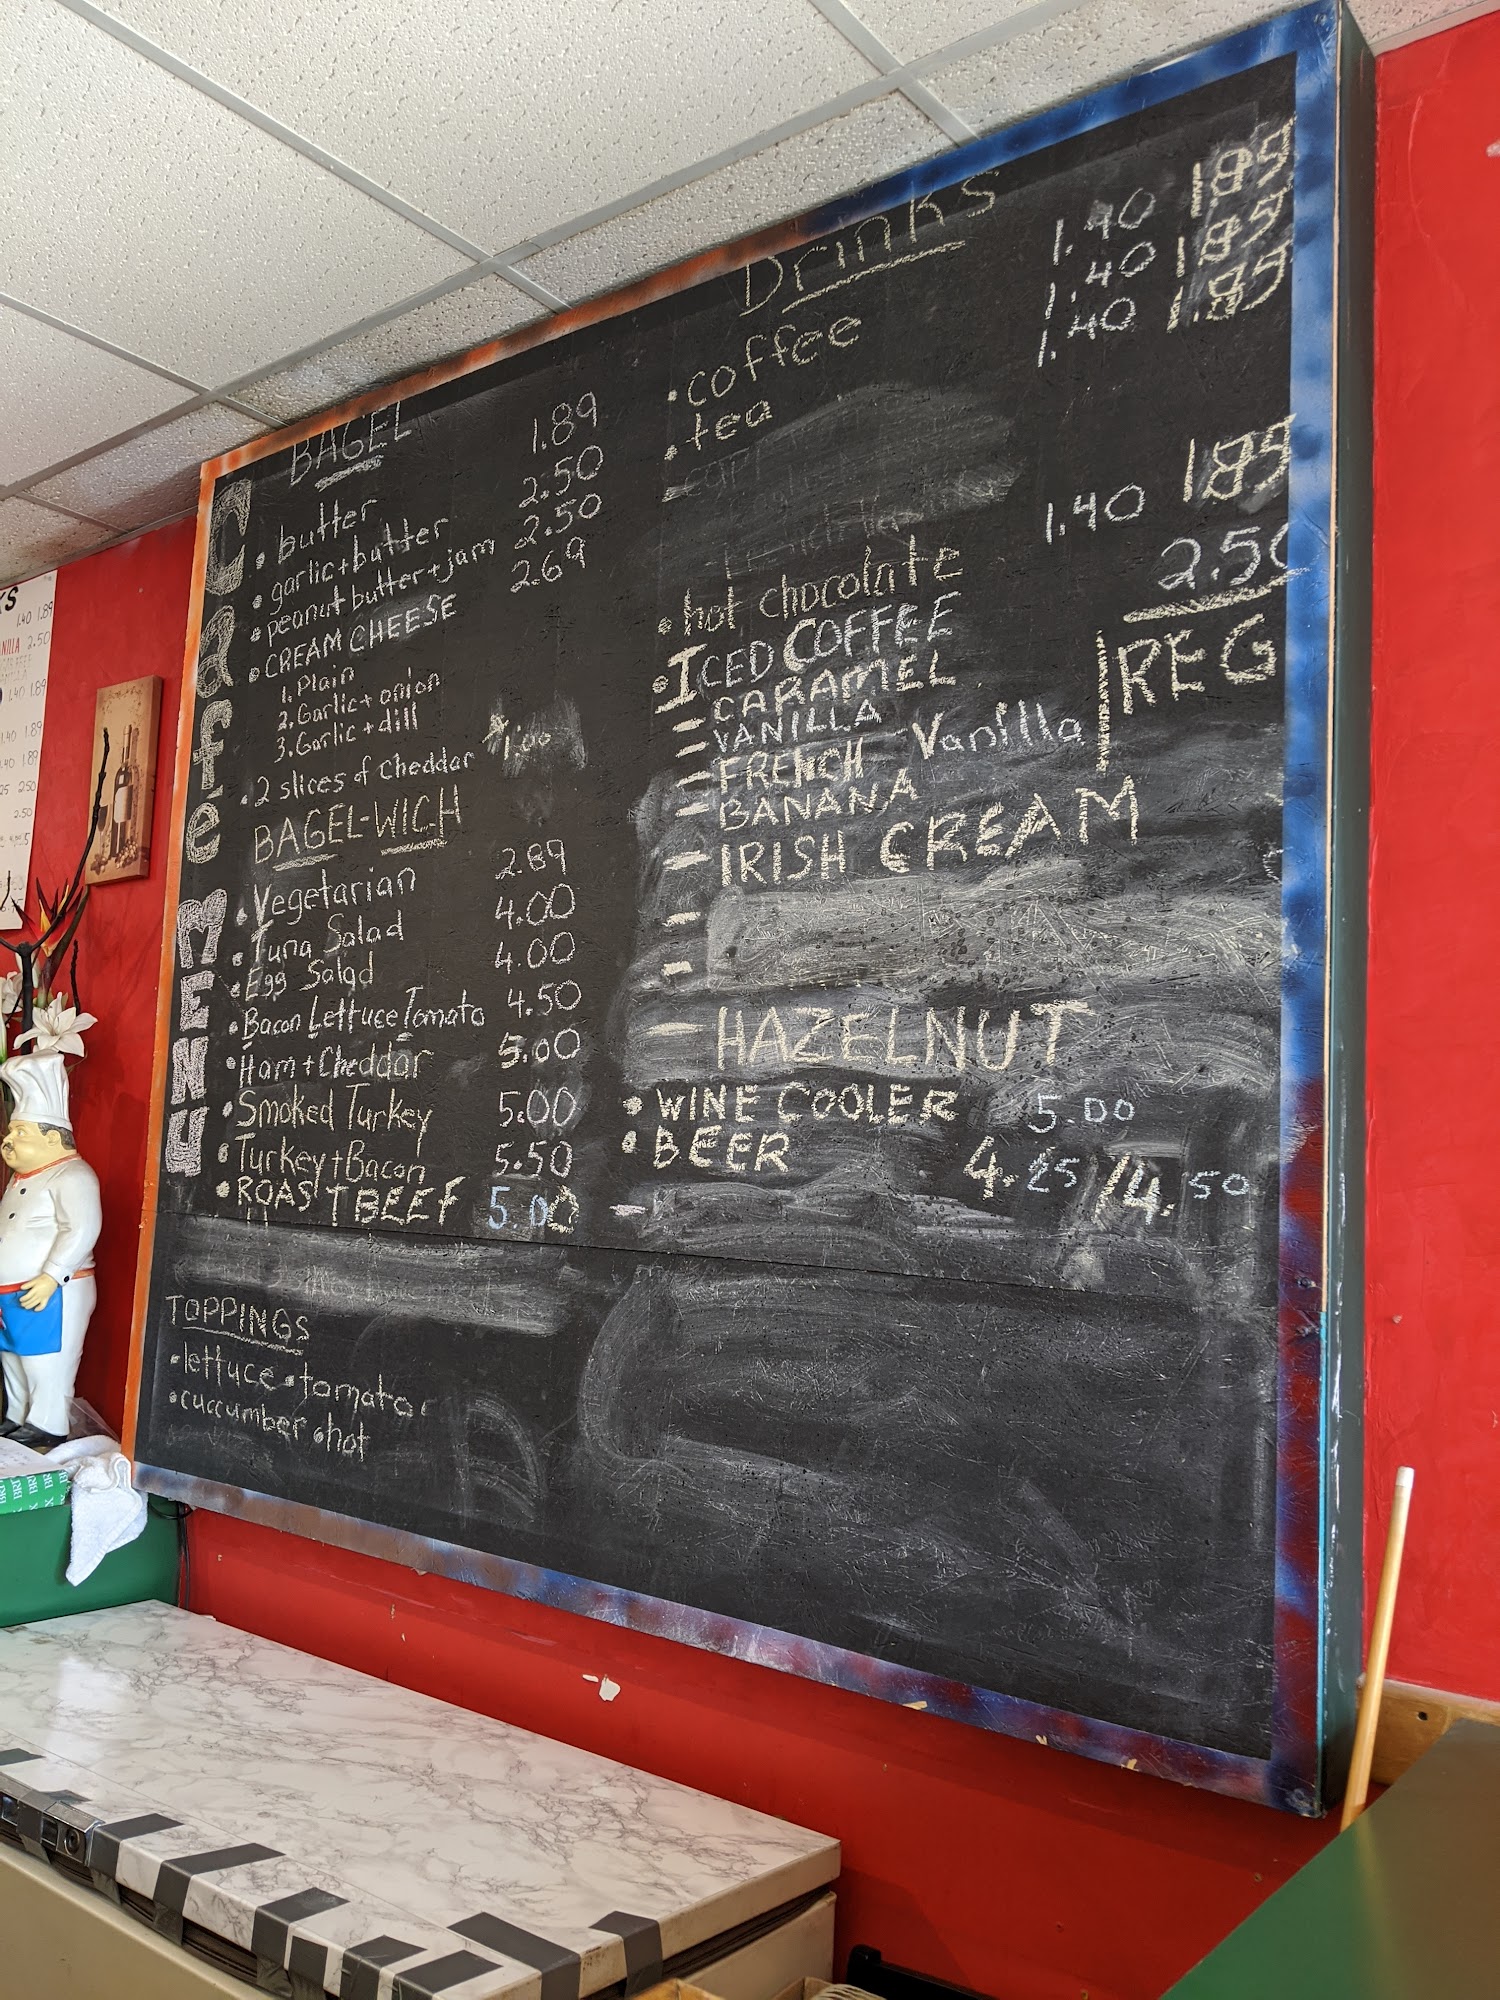 Cafe MENU
BAGEL
• butter 1.89
• garlic + butter 2.50
• peanut butter + jam 2.50
• CREAM CHEESE 2.69
1. Plain
2. Garlic + onion
3. Garlic + dill
• 2 slices of cheddar $1.00
BAGEL-WICH
• Vegetarian 2.89
• Tuna Salad 4.00
• Egg Salad 4.00
• Bacon Lettuce Tomato 4.50
• Ham + Cheddar 5.00
• Smoked Turkey 5.00
• Turkey + Bacon 5.50
• ROAST BEEF 5.00
TOPPINGS
• lettuce • tomato
• cuccumber • hot
Drinks
• coffee 1.40 1.89
• tea 1.40 1.89
1.40 1.89
• hot chocolate 1.40 1.89
• ICED COFFEE 2.50
- CARAMEL REG
- VANILLA
- FRENCH Vanilla
- BANANA
- IRISH CREAM
- HAZELNUT
• WINE COOLER 5.00
• BEER 4.25/4.50
KS
1.40 1.89
NILLA 2.50
1.40 1.89
1.40 1.89
.40 1.89
25 2.50
2.50